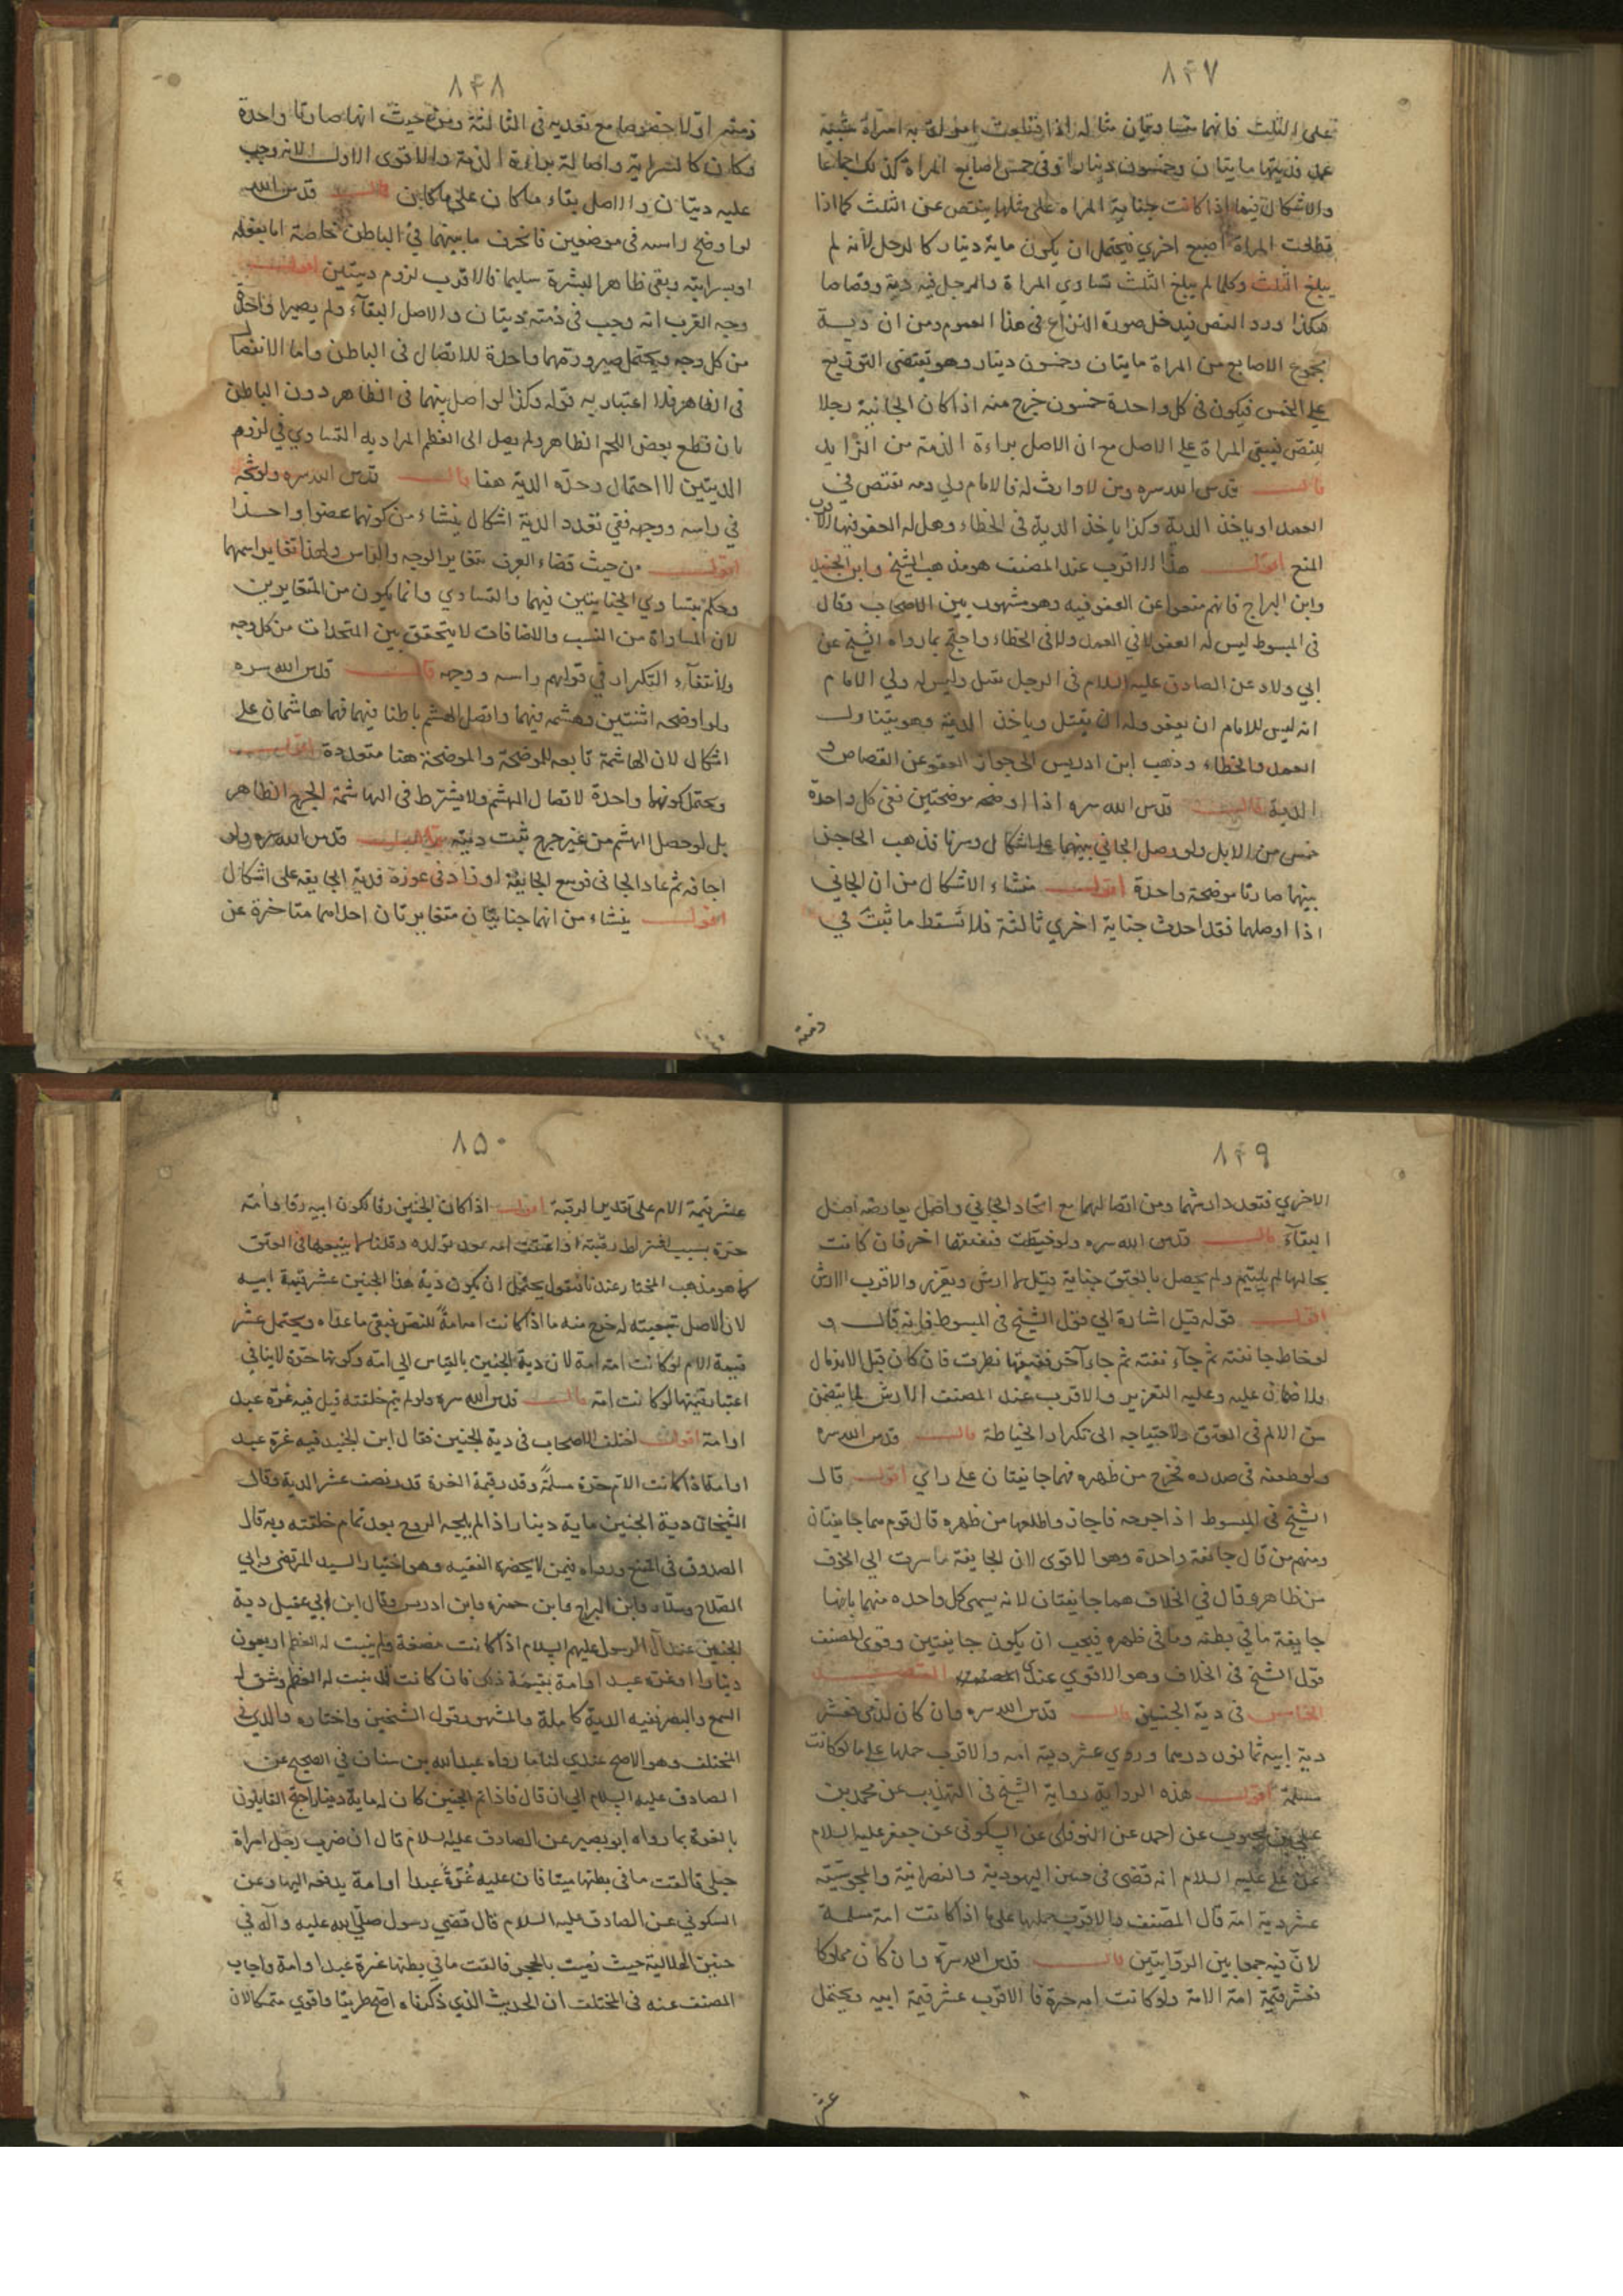 ٨٤٧
على الثلث فانهما
عمد فديتها مايتان وخمسون دينارا وفي خمس اصابع المراة كذلك اجماعا
والاشكال فيما اذا كانت جناية المراه على مثلها ينتص عن الثلث كما اذا
قطعت المراة اصبع اخري فيحتمل ان يكون ماية دينار كالرجل لأنه لم
يبلغ الثلث وكلما لم يبلغ الثلث تساوي المراة والرجل فيه دية وقصاصا
هكذا ورد النص فيدخل صورة النزاع في هذا العموم ومن ان دية
مجموع الاصابع من المراة مايتان وخمسون دينار وهو يقتضى التوزيع
على الخمس فيكون في كل واحدة خمسون خرج منه اذا كان الجاني رجلا
للنص فيبقى المراة على الاصل مع ان الاصل براءة الذمة من الزايد
قال قدس الله سره ومن لا وارث له فالامام ولي دمه يقتص في
العمد او ياخذ الدية وكذا ياخذ الدية في الخطاء وهل له العفو فيها الاقرب
المنع اقول هذا الاقرب عند المصنف هو مذهب الشيخ وابن الجنيد
وابن البراج فانهم منعوا عن العفو فيه وهو مشهور بين الاصحاب وقال
في المبسوط ليس له العفو لا في العمد ولا في الخطاء واحتج بما رواه الشيخ عن
ابي ولاد عن الصادق عليه السلام في الرجل يقتل وليس له ولي الا الامام
انه ليس للامام ان يعفو وله ان يقتل وياخذ الدية وهو يتناول
العمد والخطاء وذهب ابن ادريس الى جواز العفو عن القصاص و
الدية قال قدس الله سره اذا اوضحه موضحتين ففي كل واحدة
خمس من الابل ولو وصل الجاني بينهما على اشكال وسرتا فذهب الحاجز
بينهما صارتا موضحة واحدة اقول منشاء الاشكال من ان الجاني
اذا اوصلهما فقد احدث جناية اخري ثالثة فلا تسقط ما ثبت في
ذمته
٨٤٨
ذمته اولا خصوصا مع تعديه في الثالثة ومن حيث انها صارتا واحدة
وكان كالسراية واصالة براءة الذمة والاقوى الاول لانه وجب
عليه ديتان والاصل بقاء ما كان على ما كان قال قدس الله
لو اوضح راسه في موضعين فانخرق ما بينهما في الباطن خاصة اما بفعله
او بسرايته وبقى ظاهر البشرة سليما فالاقرب لزوم ديتين اقول
وجه القرب انه وجب في ذمته ديتان والاصل البقآء ولم يصيرا واحدا
من كل وجه ويحتمل صيرورتهما واحدة للاتصال في الباطن واما الانفصا
في الظاهر فلا اعتبار به قوله وكذا لو اوصل بينهما في الظاهر دون الباطن
بان قطع بعض اللحم الظاهر ولم يصل الى العظم المراد به التساوي في لزوم
الديتين لا احتمال وحدة الدية هنا قال قدس الله سره ولو شجه
في راسه ووجهه ففي تعدد الدية اشكال ينشاء من كونهما عضوا واحدا
اقول من حيث قضاء العرف بتغاير الوجه والراس ولهذا تغاير اسمهما
وحكم بتساوي الجنايتين فيهما والتساوي وانما يكون من المتغايرين
لان المساواة من النسب والاضافات لا يتحقق بين المتحدات من كل وجه
ولانتفآء التكرار في قولهم راسه ووجهه قال قدس الله سره
ولو اوضحه اثنتين وهشمه فيهما واتصل الهشم باطنا فيهما فهما هاشمتان على
اشكال لان الهاشمة تابعه للموضحة والموضحة هنا متعددة اقول
ويحتمل كونهما واحدة لاتصال الهشم ولا يشترط في الهاشمة الجرح الظاهر
بل لو حصل الهشم من غير جرح ثبت ديته قال قدس الله سره ولو
اجافه ثم عاد الجاني فوسع الجايفة او زاد في غوره فدية الجايفه على اشكال
اقول ينشاء من انهما جنايتان متغايرتان احداهما متاخرة عن
٨٤٩
الاخري فتعدد ارشهما ومن اتصالهما مع اتحاد الجاني واصل يعارضه اصل
البقآء قال قدس الله سره ولو خيطت ففتقها اخر فان كانت
بحالها لم يلتئم ولم يحصل بالفتق جناية قيل لا ارش ويعزر والاقرب الارش
اقول قوله قيل اشارة الى قول الشيخ في المبسوط فانه قال و
لو خاط جائفته ثم جآء آخر ففتقها نظرت فان كان قبل الاندمال
فلا ضمان عليه وعليه التعزير والاقرب عند المصنف الارش لما يتضمن
من الالم في الفتق ولاحتياجه الى تكرار الخياطة قال قدس الله سره
ولو طعنه في صدره فخرج من ظهره فهما جائفتان على راي اقول قال
الشيخ في المبسوط اذا جرحه فاجاف واطلعها من ظهره قال قوم هما جائفتان
ومنهم من قال جائفة واحدة وهو الاقوى لان الجايفة ما سرت الى الجوف
من ظاهر وقال في الخلاف هما جائفتان لانه يسمى كل واحده منهما بانها
جايفة ما في بطنه وما في ظهره فيجب ان يكون جايفتين وقوى المصنف
قول الشيخ في الخلاف وهو الاقوي عندي المقصد
الخامس في دية الجنين قال قدس الله سره وان كان لذمي فعشر
دية ابيه ثمانون درهما وروي عشر دية امه والاقرب حملها على ما لو كانت
مسلمة اقول هذه الرواية رواية الشيخ في التهذيب عن محمد بن
علي بن محبوب عن احمد عن النوفلي عن السكوني عن جعفر عليه السلام
عن علي عليه السلام انه قضى في جنين اليهودية والنصرانية والمجوسية
عشر دية امه قال المصنف والاقرب حملها على ما اذا كانت امه مسلمة
لانّ فيه جمعا بين الروايتين قال قدس الله سره وان كان مملوكا
فعشر قيمة امه الامة ولو كانت امه حرة فالاقرب عشر قيمة ابيه ويحتمل
عشر
٨٥٠
عشر قيمة الام على تقدير الرقية اقول اذا كان الجنين رقا لكون ابيه رقا وامّه
حرّة بسبب اشتراط رقيته او اعتقت امه بعد تولده وقلنا لا يتبعها في العتق
كما هو مذهب المختار عندنا فنقول يحتمل ان يكون دية هذا الجنين عشر قيمة ابيه
لان الاصل تبعيته له خرج منه ما اذا كانت امه امةً للنص فيبقى ما عداه ويحتمل عشر
قيمة الام لو كانت امه امة لان دية الجنين بالقياس الى امّه وكونها حرّة لا ينافي
اعتبار قيمتها لو كانت امة قال قدس الله سره ولو لم يتم خلقته قيل فيه غرّة عبد
او امة اقول اختلف الاصحاب في دية الجنين فقال ابن الجنيد فيه غرّة عبد
او امة اذا كانت الام حرّة مسلمةً وقدر قيمة الغرة قدر نصف عشر الدية وقال
الشيخان دية الجنين ماية دينار اذا لم يلجه الروح بعد تمام خلقته وبه قال
الصدوق في المقنع ورواه فيمن لا يحضره الفقيه وهو اختيار السيد المرتضى وابي
الصلاح وسلار وابن البراج وابن حمزه وابن ادريس وقال ابن ابي عقيل دية
الجنين عند آل الرسول عليهم السلام اذا كانت مضغة ولم ينبت له العظم اربعون
دينارا او غرّه عبد او امة بقيمة ذلك فان كانت قد نبت له العظم وشق له
السمع والبصر ففيه الدية كاملة والمشهور قول الشيخين واختاره والدي في
المختلف وهو الاصح عندي لنا ما رواه عبدالله بن سنان في الصحيح عن
الصادق عليه السلام الى ان قال فاذا تم الجنين كان له ماية دينار احتج القايلون
بالغرة بما رواه ابو بصير عن الصادق عليه السلام قال ان ضرب رجل امراة
حبلى فالقت ما في بطنها ميتا فان عليه غُرّةً عبدا او امة يدفعه اليها وعن
السكوني عن الصادق عليه السلام قال قضي رسول صلّى الله عليه وآله في
جنين الهلالية حيث رُميت بالحجر فالقت ما في بطنها غرة عبدا وامة واجاب
المصنف عنه في المختلف ان الحديث الذي ذكرناه اصح طريقا واقوي متمسكا لان